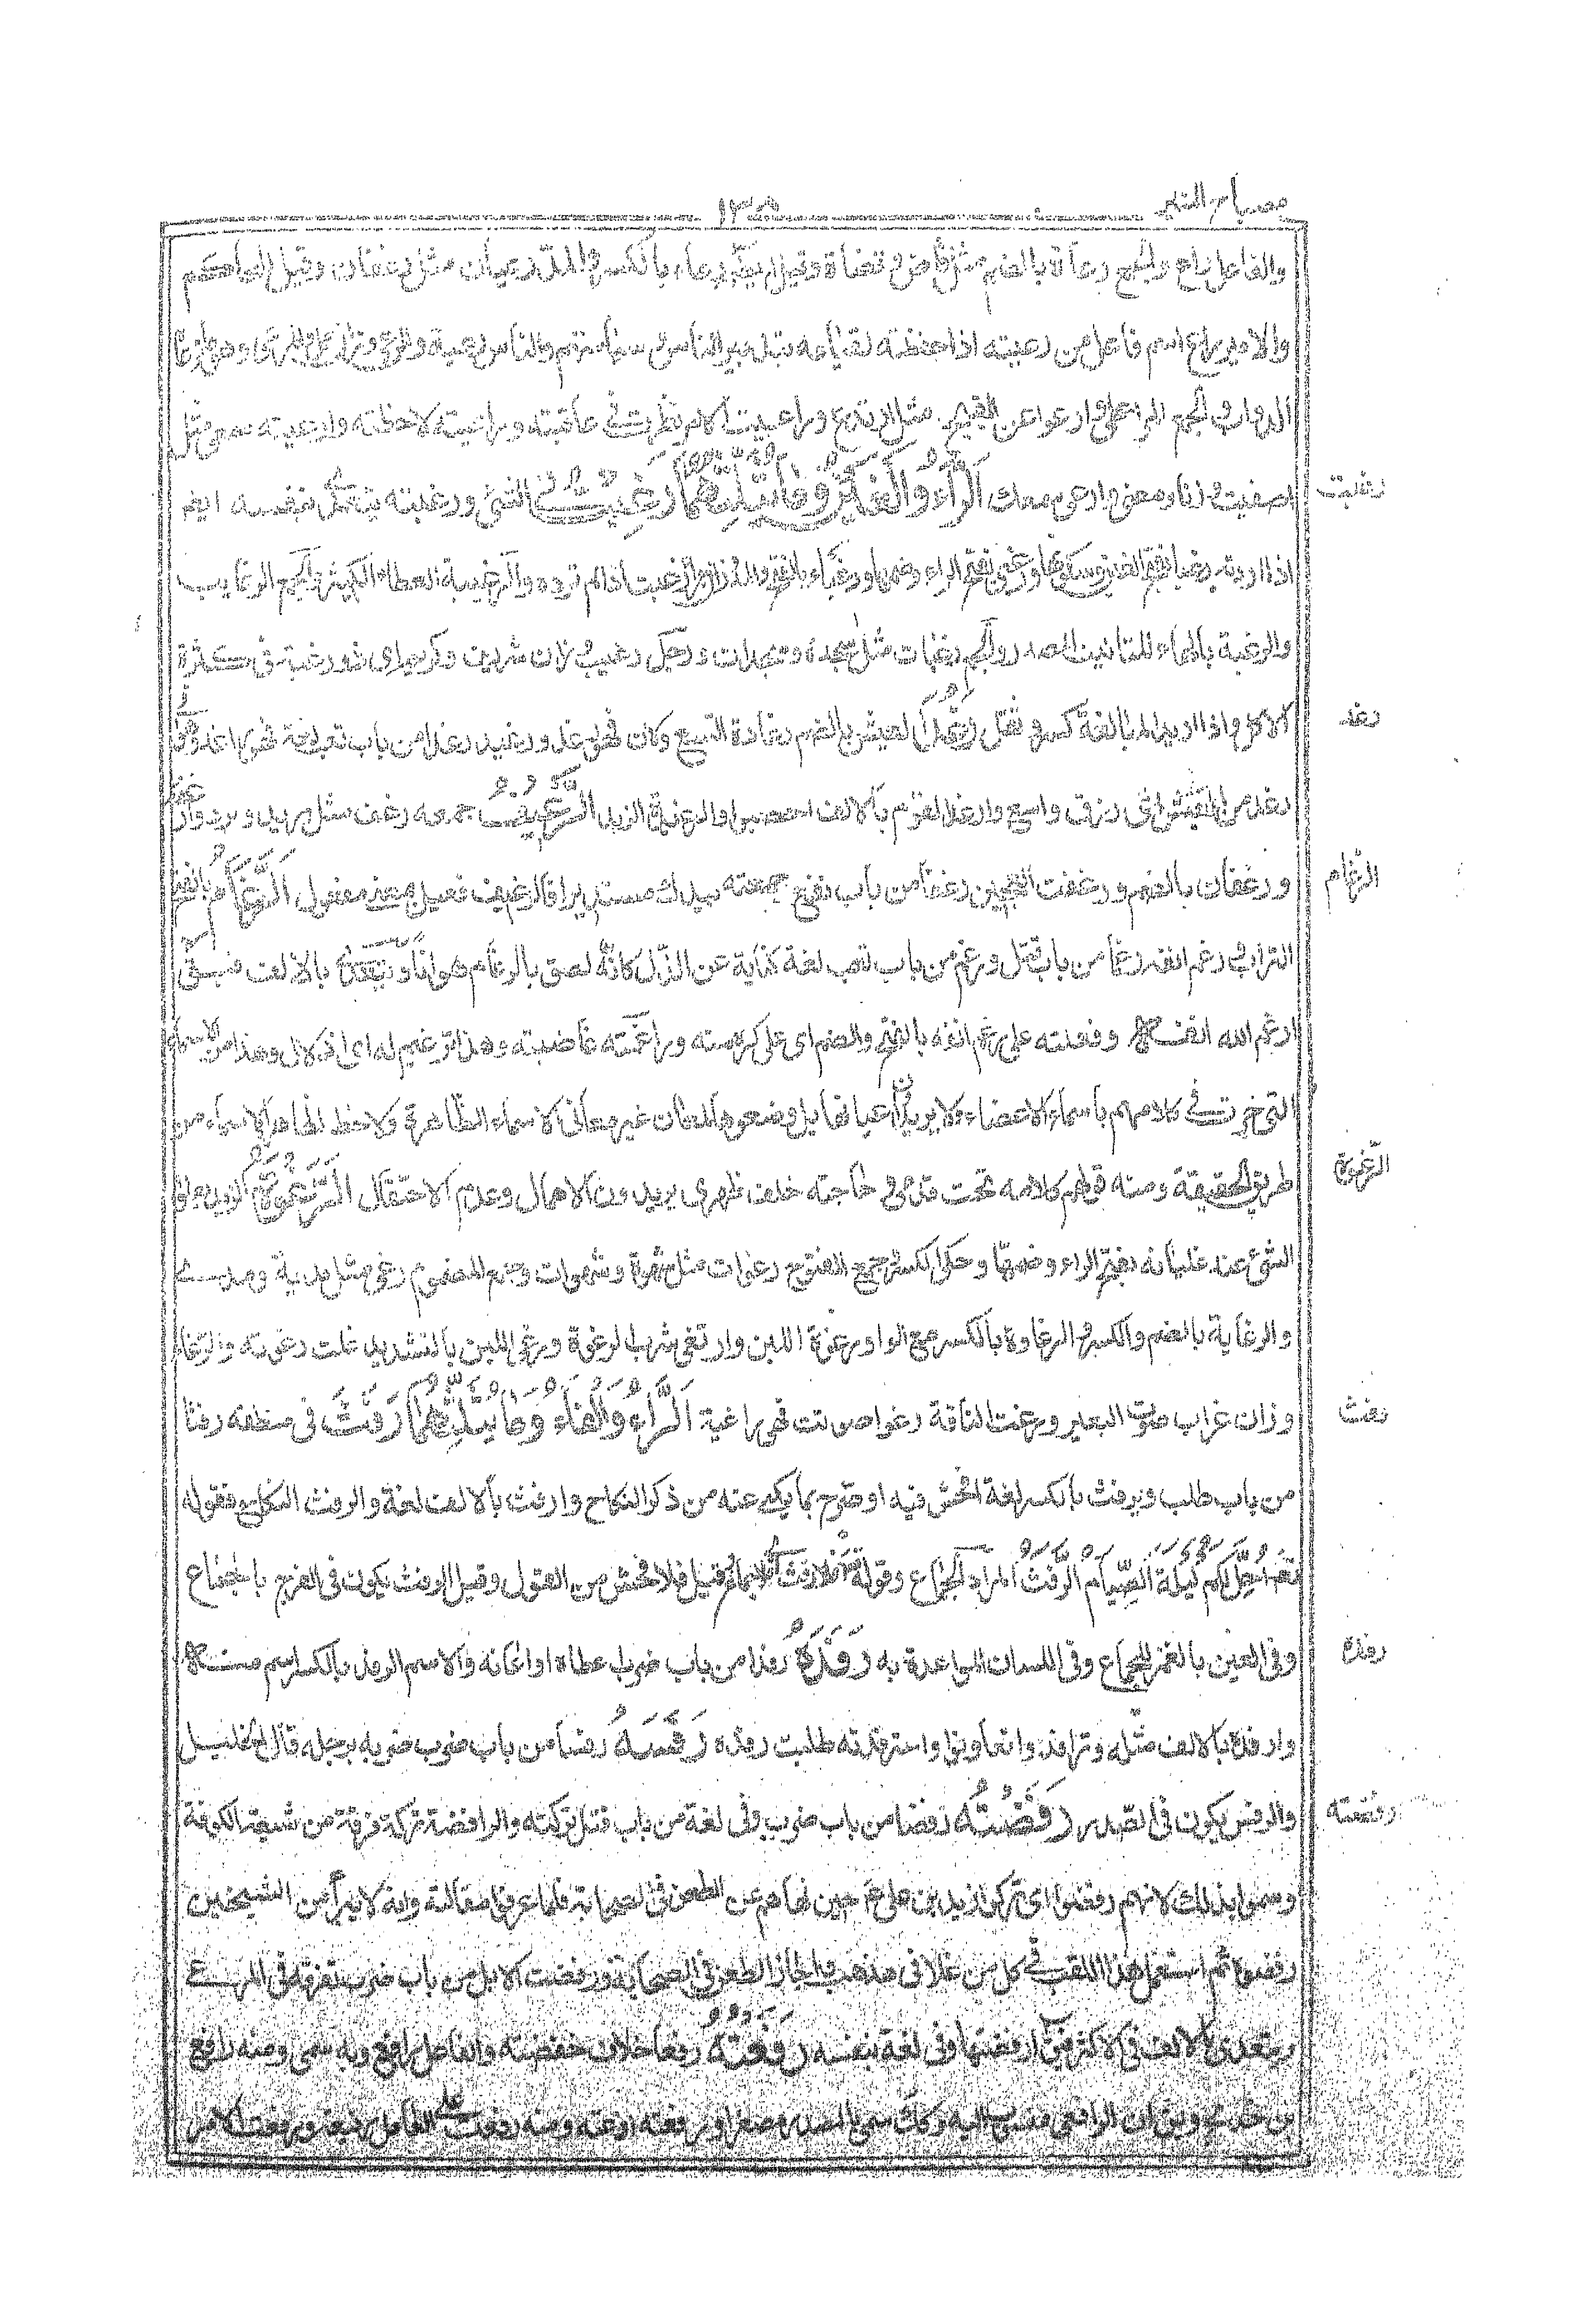 مصباح المنير
١٣٥
والفاعل راع والجمع رعاة بالضم مثل قاض وقضاة وقيل ايضا رعاء بالكسر والمد ورعيان مثل رغفان وقيل للحاكم
والامير راع اسم فاعل من رعيته اذا حفظته لقيامه بتدبير الناس وسياستهم والناس رعية
الدواب والجمع المراعى وارعوى عن القبيح مثل ارتدع وراعيت الامر نظرت في عاقبته وراعيته لاحظته وارعيته سمعي مثل
اصغيت وزنا ومعنى وارعني سمعك الراء والغين وما يثلثهما رغبت في الشئ ورغبته يتعدى بنفسه ايضا
رغبت
اذا اردته رغبا بفتح الغين وسكونها ورغبى بفتح الراء وضمها ورغباء بالفتح والمد ورغبت اذا لم ترده والرغيبة العطاء الكثير والجمع الرغايب
والرغبة بالهاء للتانيث المصدر والجمع رغبات مثل سجدة وسجدات ورجل رغيب وزان شريف وكريم اى ذو رغبة في كثرة
الاكل واذا اريد المبالغة كسر وثقل رغد العيش بالضم رغادة اتسع وكان فهو رغد ورغيد ورغد رغدا من باب تعب لغة فهو راغد وهو في
رغد
رغد من العيش اى رزق واسع وارغد القوم بالالف اخصبوا والرغيدة الزبد الرغيف جمعه رغف مثل بريد وبرد وارغفة
ورغفان بالضم ورغفت العجين رغفا من باب نفع جمعته بيدك مستديرا فالرغيف فعيل بمعنى مفعول الرغام بالفتح
الرغام
التراب ورغم انفه رغما من باب قتل ورغم من باب تعب لغة كناية عن الذل كانه لصق بالرغام هوانا ويتعدى بالالف فيق
ارغم الله انفه وفعلته على رغم انفه بالفتح والضم اى على كره منه وراغمته غاضبته وهذا ترغيم له اى اذلال وهذا من الامثال
التي جرت في كلامهم باسماء الاعضاء ولا يريدون اعيانها بل وضعوها لمعان غير معاني الاسماء الظاهرة ولا حظ لظاهر الاسماء من
طريق الحقيقة ومنه قولهم كلامه تحت قدمي وحاجته خلف ظهرى يريدون الاهمال وعدم الاحتفال الرغوة الزبد يعلو
الرغوة
الشئ عند غليانه بفتح الراء وضمها وحكى الكسر وجمع المفتوح رغوات مثل شهوة وشهوات وجمع المضموم رغى مثل مدية ومدى
والرغاية بالضم والكسر والرغاوة بالكسر مع الواو رغوة اللبن وارتغى شرب الرغوة ورغى اللبن بالتشديد علت رغوته والرغاء
وزان غراب صوت البعير ورغت الناقة رغوا صوتت فهى راغية الراء والفاء وما يثلثهما رفث في منطقه رفثا
رفث
من باب طلب ويرفث بالكسر لغة افحش فيه او صرح بما يكنى عنه من ذكر النكاح وارفث بالالف لغة والرفث النكاح فقوله
تعه احل لكم ليلة الصيام الرفث المراد الجماع وقوله فلا رفث قيل فلا جماع وقيل فلا فحش من القول وقيل الرفث يكون في الفرج بالجماع
وفى العين بالغمز للجماع وفى اللسان المواعدة به رفده رفدا من باب ضرب عطاه او اعانه والاسم الرفد بالكسر اسم منه
رفده
وارفده بالالف مثله وترافدوا تعاونوا واسترفدته طلبت رفده رفسه رفسا من باب ضرب ضربه برجله قال الخليل
والرفس يكون في الصدر رفضته رفضا من باب ضرب وفى لغة من باب قتل تركته والرافضة فرقة من شيعة الكوفة
رفضته
وسموا بذلك لانهم رفضوا اى تركوا زيد بن على ع حين نهاهم عن الطعن في الصحابة فلما عرفوا مقالته وانه لا يبرأ من الشيخين
رفضوه ثم استعمل هذا اللقب في كل من غلا في هذا المذهب واجاز الطعن في الصحابة ورفضت الابل من باب ضرب تفرقت في المرعى
ويتعدى بالالف في الاكثر فيق ارفضتها وفى لغة بنفسه رفعته رفعا خلاف خفضته والفاعل رافع وبه سمى ومنه رافع
بن خديج ويق ان الرافعى منسوب اليه وكذلك سمى بالمصدر مصغرا ورفعته اذعته ومنه رفعت على العامل رفيعة ورفعت الامر